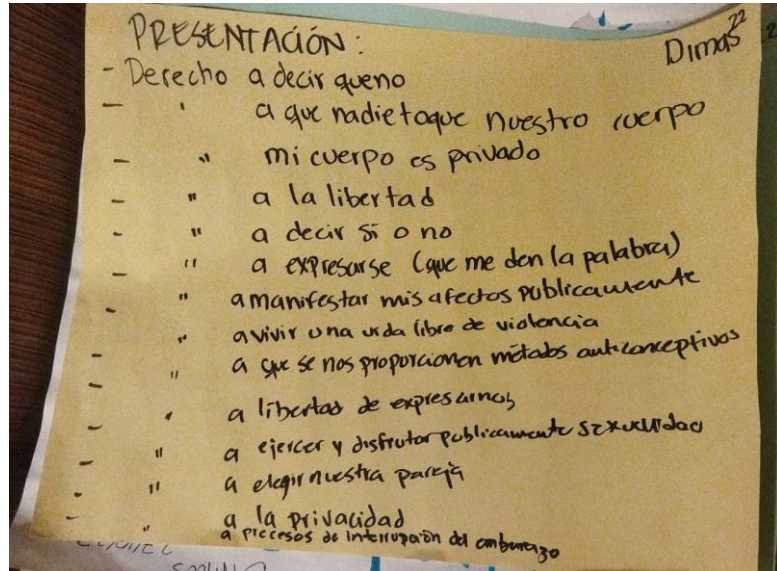 PRESENTACIÓN:
Dimas 22
- Derecho a decir que no
- " a que nadie toque nuestro cuerpo
- " mi cuerpo es privado
- " a la libertad
- " a decir si o no
- " a expresarse (que me den la palabra)
" a manifestar mis afectos publicamente
" a vivir una vida libre de violencia
- " a que se nos proporcionen métodos anticonceptivos
- " a libertad de expresarnos
- " a ejercer y disfrutar publicamente sexualidad
- " a elegir nuestra pareja
- " a la privacidad
- " a procesos de interrupción del embarazo